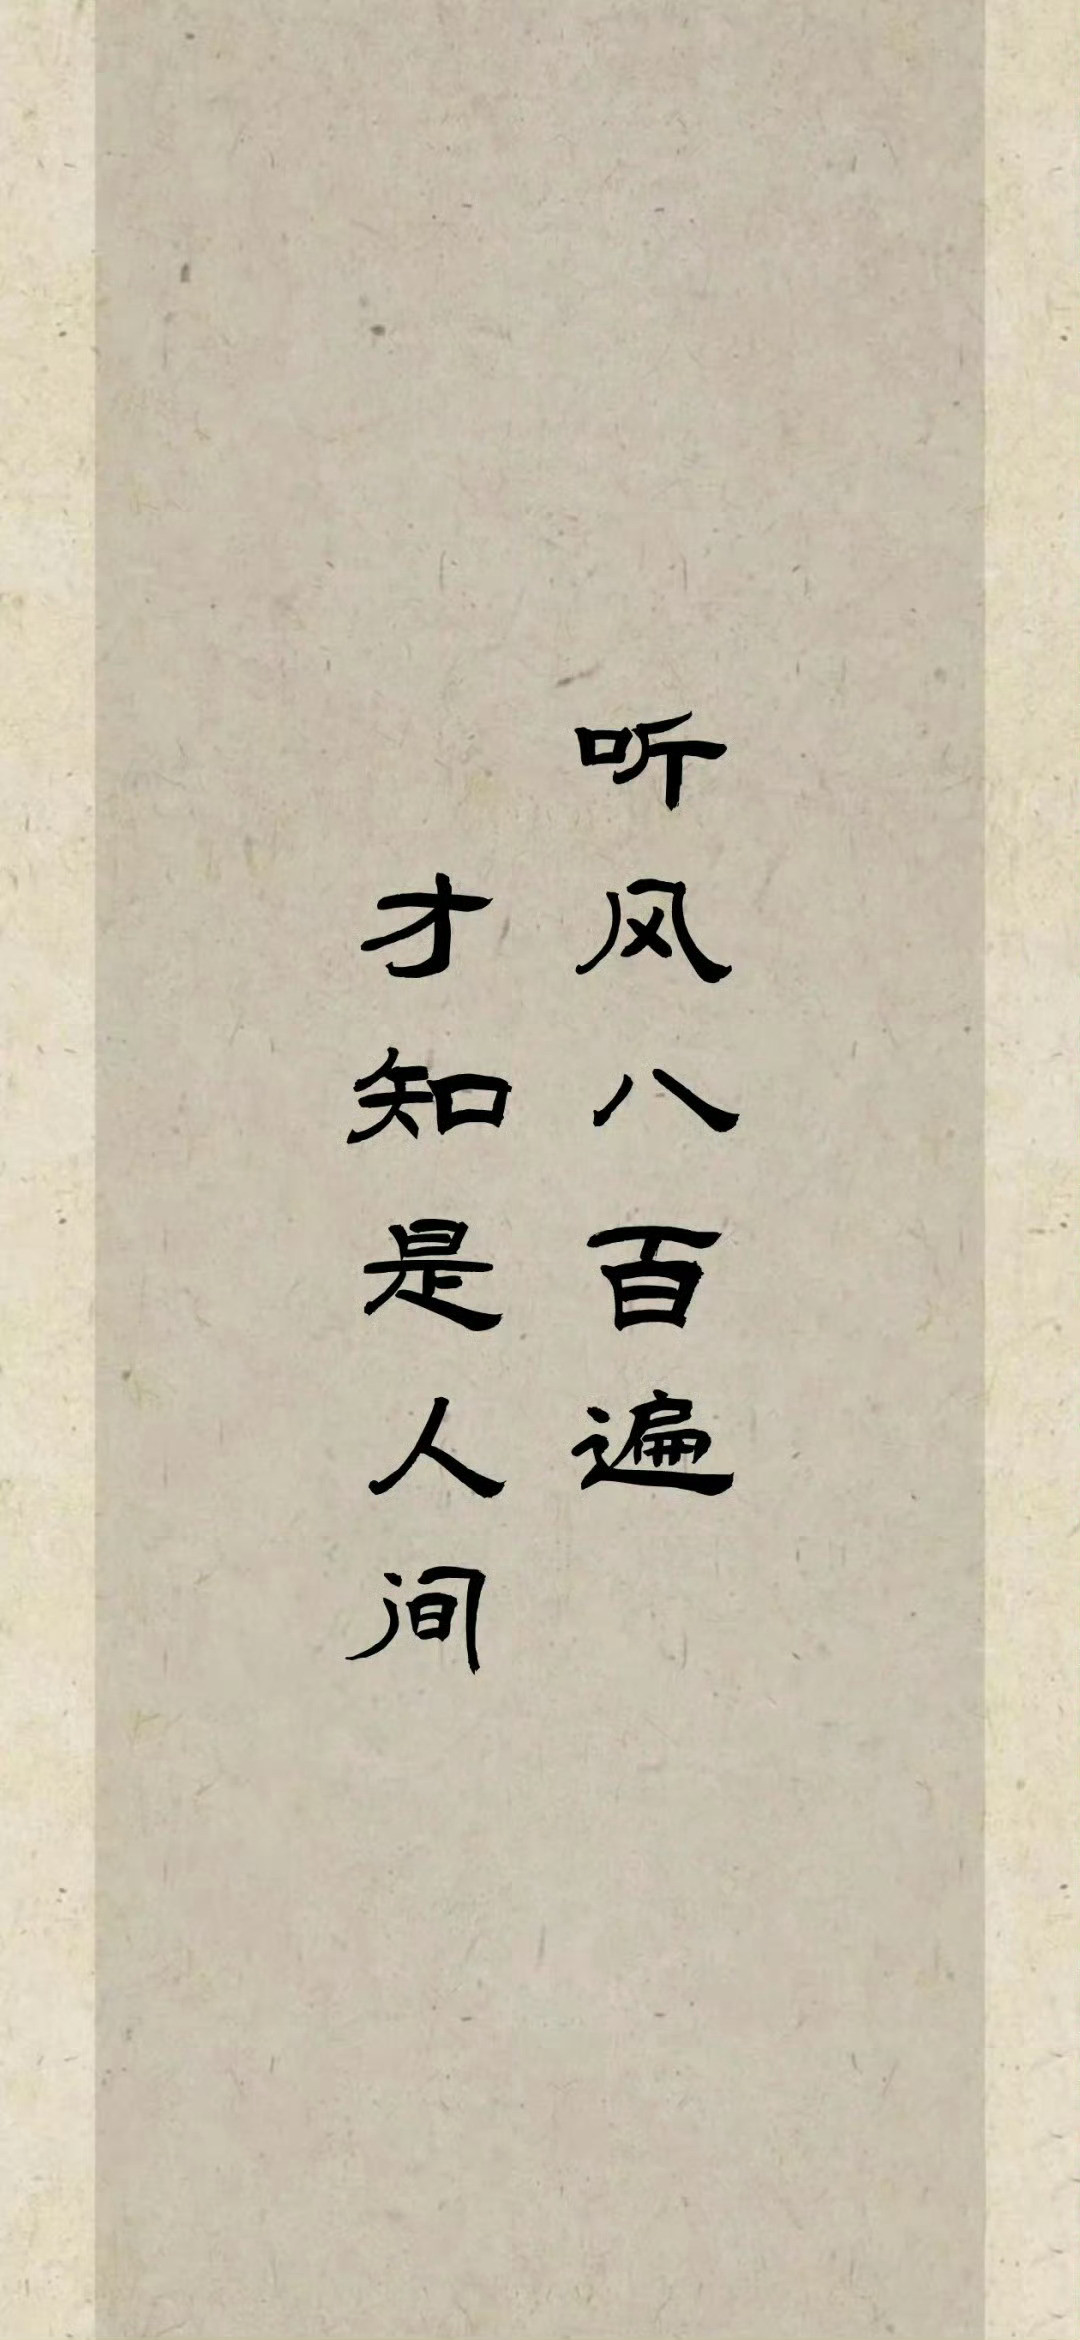 听风八百遍
才知是人间